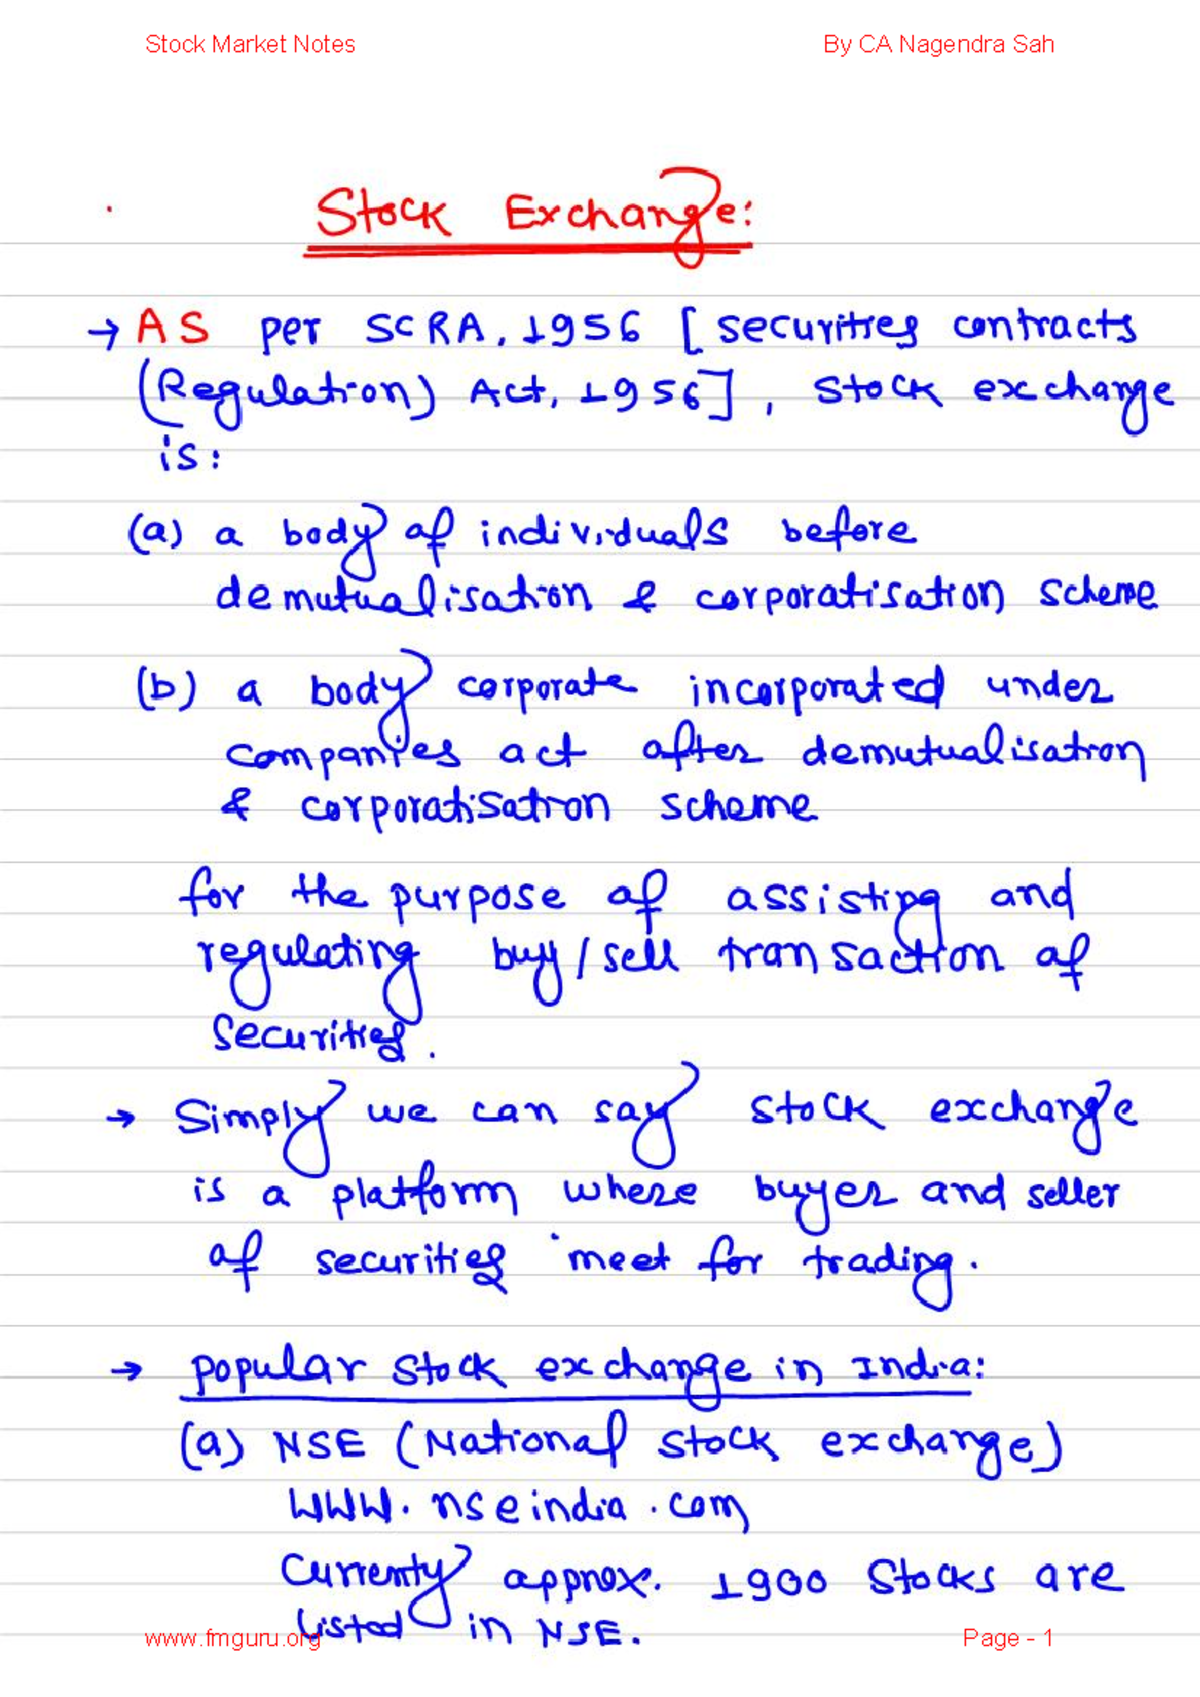 Stock Market Notes By CA Nagendra Sah
Stock Exchange:
→ AS per SCRA, 1956 [securities contracts
(Regulation) Act, 1956], stock exchange
is:
(a) a body of individuals before
demutualisation & corporatisation scheme
(b) a body corporate incorporated under
companies act after demutualisation
& corporatisation scheme
for the purpose of assisting and
regulating buy/sell transaction of
securities.
→ Simply we can say stock exchange
is a platform where buyer and seller
of securities meet for trading.
→ popular stock exchange in India:
(a) NSE (National stock exchange)
WWW.nseindia.com
Currently approx. 1900 stocks are
listed in NSE.
www.fmguru.org Page - 1